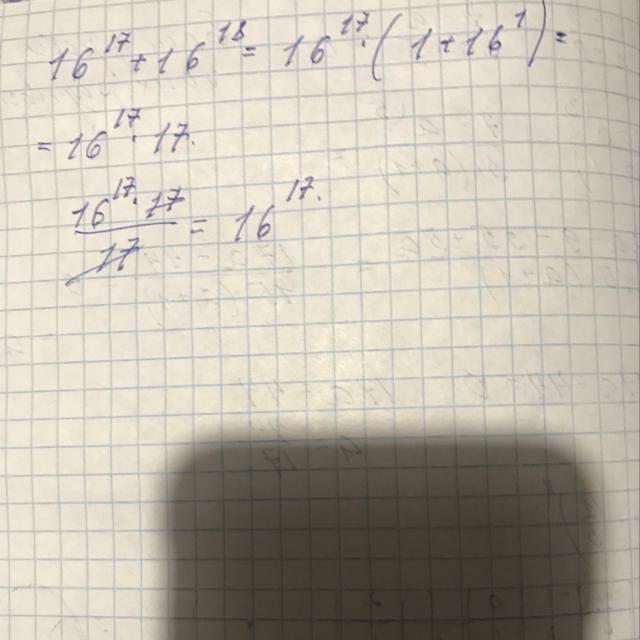 16^17 + 16^18 = 16^17 · (1 + 16^1) =
= 16^17 · 17.
16^17 · 17 / 17 = 16^17.